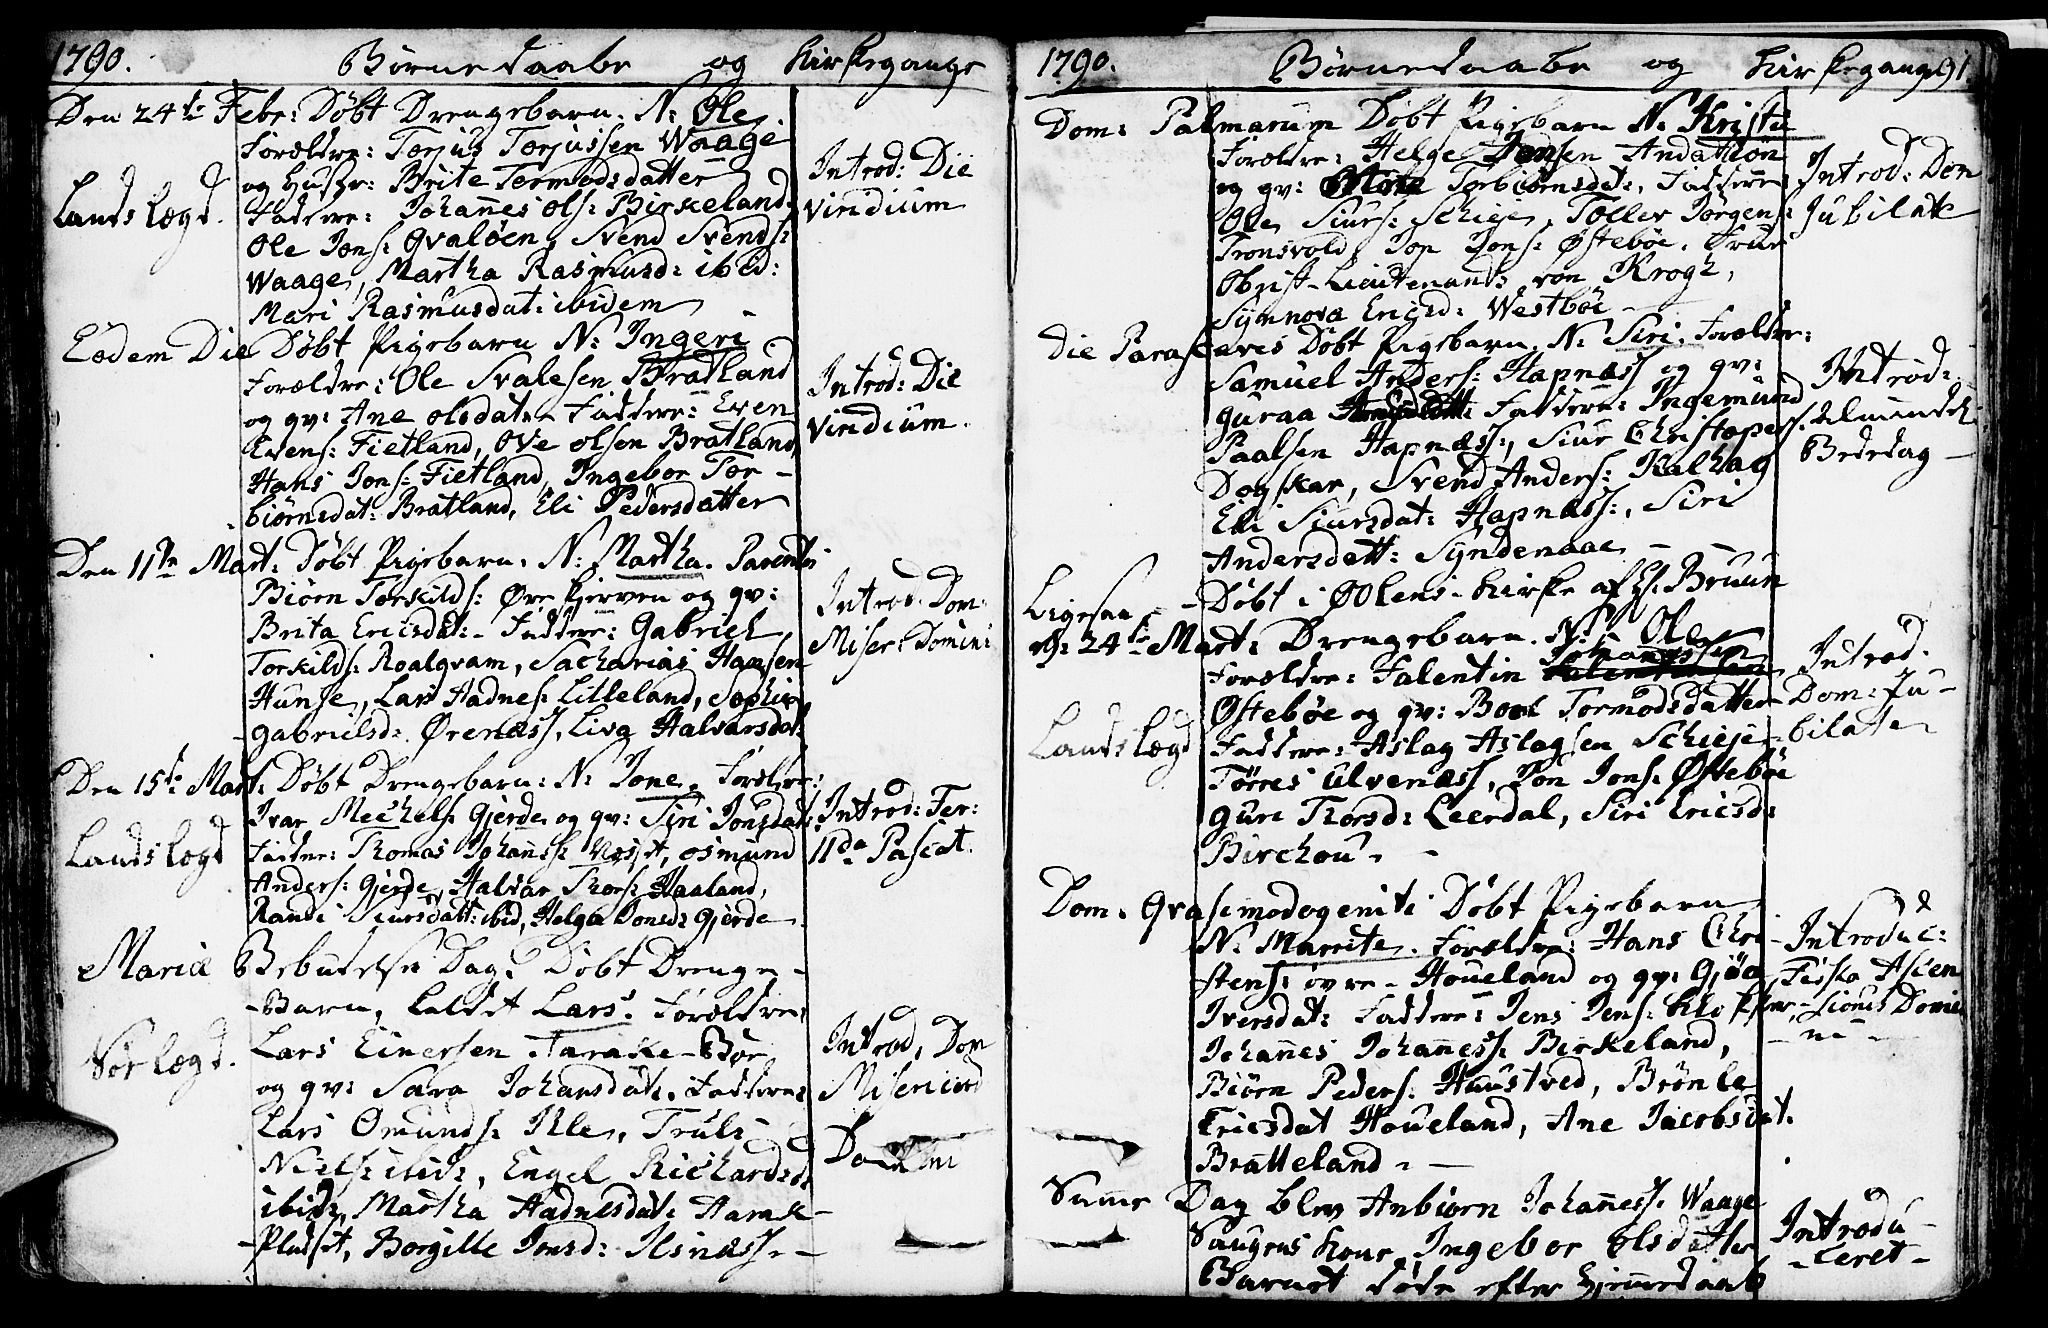 1790. Børnedaabe og Kirkegange
Den 24de Febr: Døbt Drengebarn. N: Ole.
Forældre: Torjus Torjussen Waage
og Hustr: Brite Tormodsdatter
Landslægd. Faddere: Johannes Ols: Birkeland,
Ole Jons: Qvaløen, Svend Svends:
Waage, Martha Rasmusd: ibid:
Mari Rasmusdat: ibidem
Introd: Die
viridium
Eodem Die Døbt Pigebarn N: Ingeri
Forældre: Ole Svalesen Bratland
og qv: Ane Olsdat: Faddere: Even
Evens: Fietland, Ove Olsen Bratland,
Hans Jons: Fietland, Ingebor Tor-
biørnsdat: Bratland, Eli Pedersdatter
Introd: Die
viridium.
Den 11te Mart: Døbt Pigebarn. N: Martha. Parentes
Biørn Torkilds: Ørekjerven og qv:
Brita Ericsdat: Faddere: Gabriel
Torkilds: Roalqvam, Sacharias Hansen
Hunse, Lars Hadnes: Lilleland, Sophie
Gabrielsd: Ørenæss, Liva Halvarsdat:
Introd: Dom:
Miser: Domini
Den 15de Mart: Døbt Drengebarn: N: Jone. Forældre:
Ivar Mechels: Gjerde og qv: Siri Jonsdat:
Landslægd Faddere: Thomas Johans: Næsset, Osmund
Anders: Gjerde, Halvar Thors: Haaland,
Randi Siursdatt: ibid, Helga Jonsd: Gjerde
Introd: Fer:
IIda Pascat.
Mariæ Bebudelse Dag, Døbt Drenge-
-Barn, kaldet Lars. Forældre,
Sørlægd. Lars Einersen Harake-Bøe
og qv: Sara Johansdat: Faddere:
Lars Omunds: Ihle, Truls
Niels: ibid:, Engel Richardsd:
ibid, Martha Hadnesdat: Harak-
-Pladset, Borgille Jonsd: Ilsnæss.
Introd, Dom
Misericord
Domini
1790. Børnedaabe og Kirkegange 91
Dom: Palmarum Døbt Pigebarn N: Kristi
Forældre: Helge Hansen Andatløn
og qv: Torbiørnsdat:, Faddere:
Ole Siurs: Schieie, Toller Jørgens:
Tronsvold, Jon Jons: Østebøe, Frue
Obrist-Lieutenants von Krogh,
Synnova Ericsd: Westbøe
Introd: Dom
Jubilate
Die Parasceves Døbt Pigebarn. N: Siri. Forældre:
Samuel Anders: Hapnæss og qv:
Guraa Faddere: Ingemund
Paalsen Hapnæss:, Siur Christophers:
Dogskar, Svend Anders: Kalhag
Eli Siursdat: Hapnæss:, Siri
Andersdatt: Syndenaae
Introd:
Almindel:
Bededag
Ligesaa - Døbt i Ølens-Kirke af Hr Bruun
d: 24de Mart: Drengebarn. N: Ole
Johannessen
Forældre: Falentin Falentinsen
Østebøe og qv: Boel Tormodsdatter
Landslægd Faddere: Aslag Aslagsen Schieie
Tørres Ulvenæss, Jon Jons: Østebøe
Guri Thorsd: Leerdal, Siri Ericsd:
Birchou
Introd.
Dom: Ju-
bilate
Dom. Qvasimodogeniti Døbt Pigebarn
N: Marrite. Forældre: Hans Chri-
stens: øvre-Houeland og qv: Gjøa
Iversdat: Faddere: Jens Jens: Klokker,
Johannes Johannes: Berkeland,
Biørn Peders: Haustved, Brønle
Ericsdat Houeland, Ane Jacobsdat.
Bratteland
Introduc:
Festo Ascen
-sionis Domi
-ni-
Samme Dag blev Anbiørn Johanness: Waage
Saugens Kone Ingebor Olsdatter
Barnet døde efter Hjemmedaab
Introdu-
-ceret-